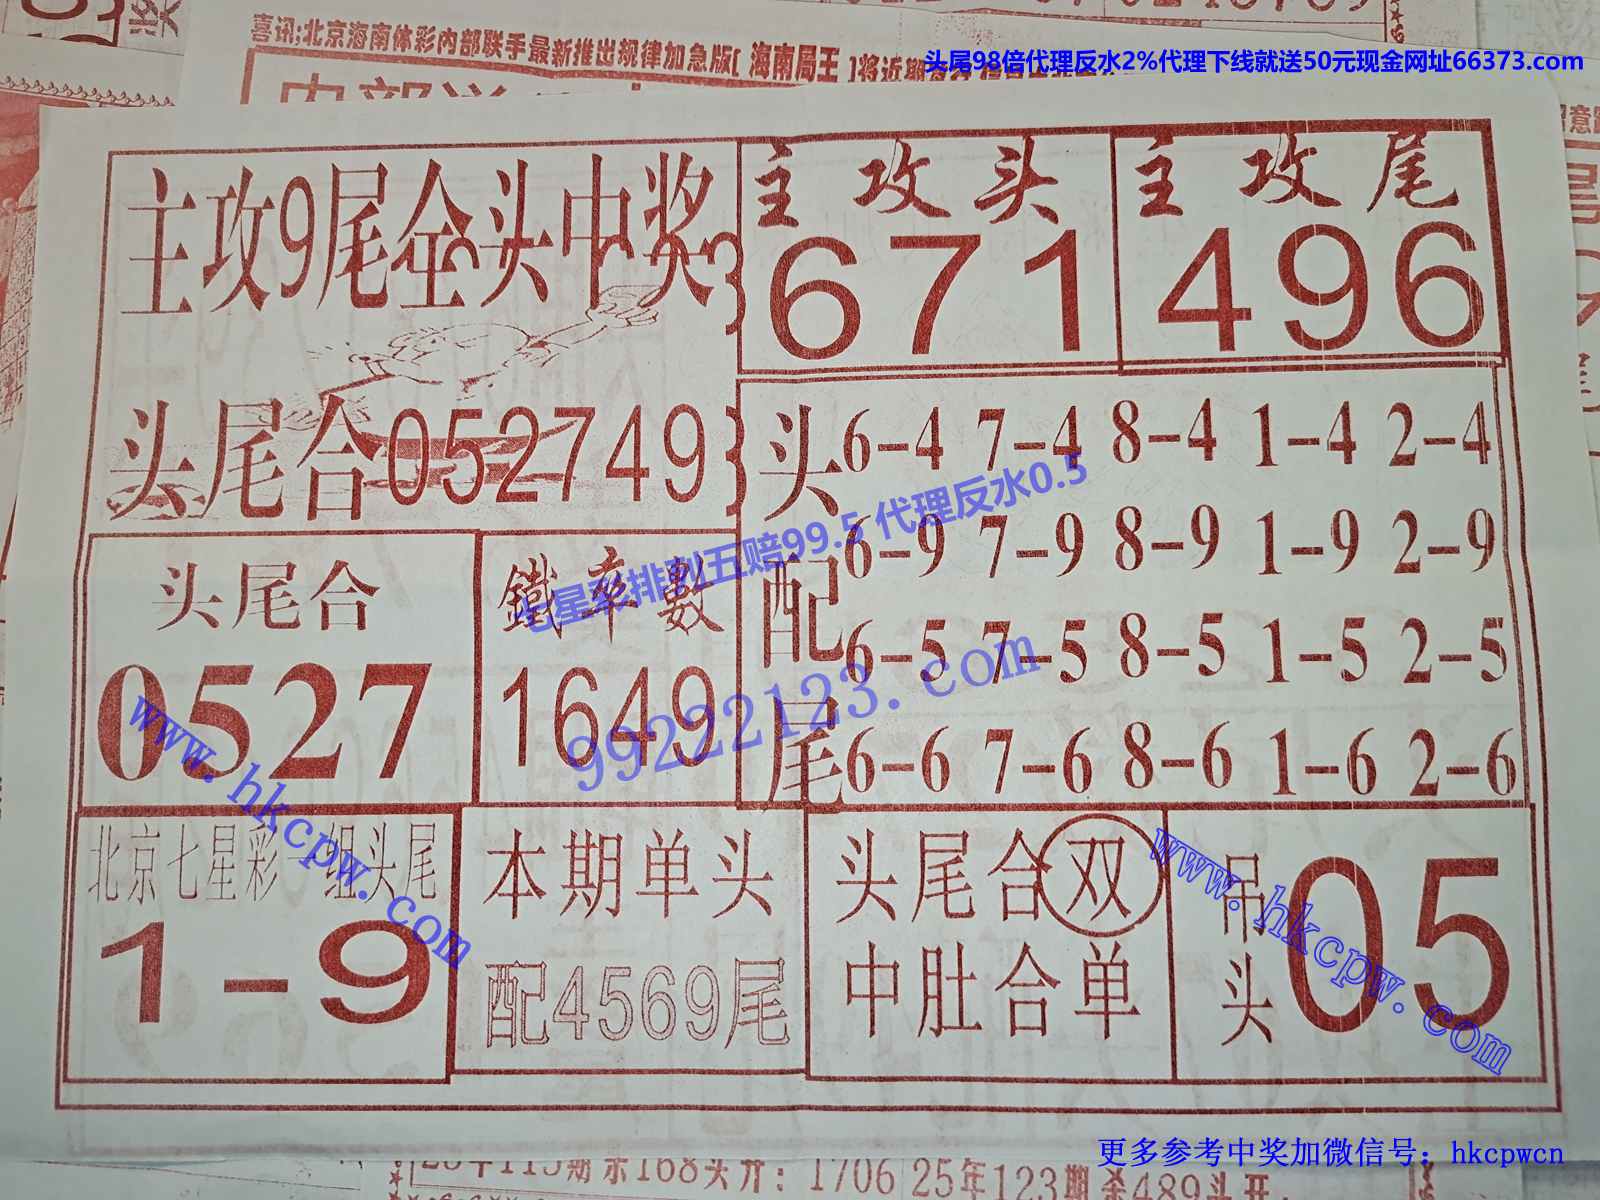 喜讯;北京海南体彩内部联手最新推出规律加急版[海南局王]将近期
头尾98倍代理反水2%代理下线就送50元现金网址66373.com
主攻9尾全头中奖
头尾合052749
主攻头
671
主攻尾
496
头配尾
6-4 7-4 8-4 1-4 2-4
6-9 7-9 8-9 1-9 2-9
6-5 7-5 8-5 1-5 2-5
6-6 7-6 8-6 1-6 2-6
头尾合
0527
鐵率數
1649
七星彩排列五赔99.5 代理反水0.5
99222123.com
北京七星彩一组头尾
1-9
www.hkcpw.com
本期单头
配4569尾
头尾合双
中肚合单
吊头
05
www.hkcpw.com
更多参考中奖加微信号：hkcpwcn
25年115期杀168头开：1706 25年123期杀489头开：